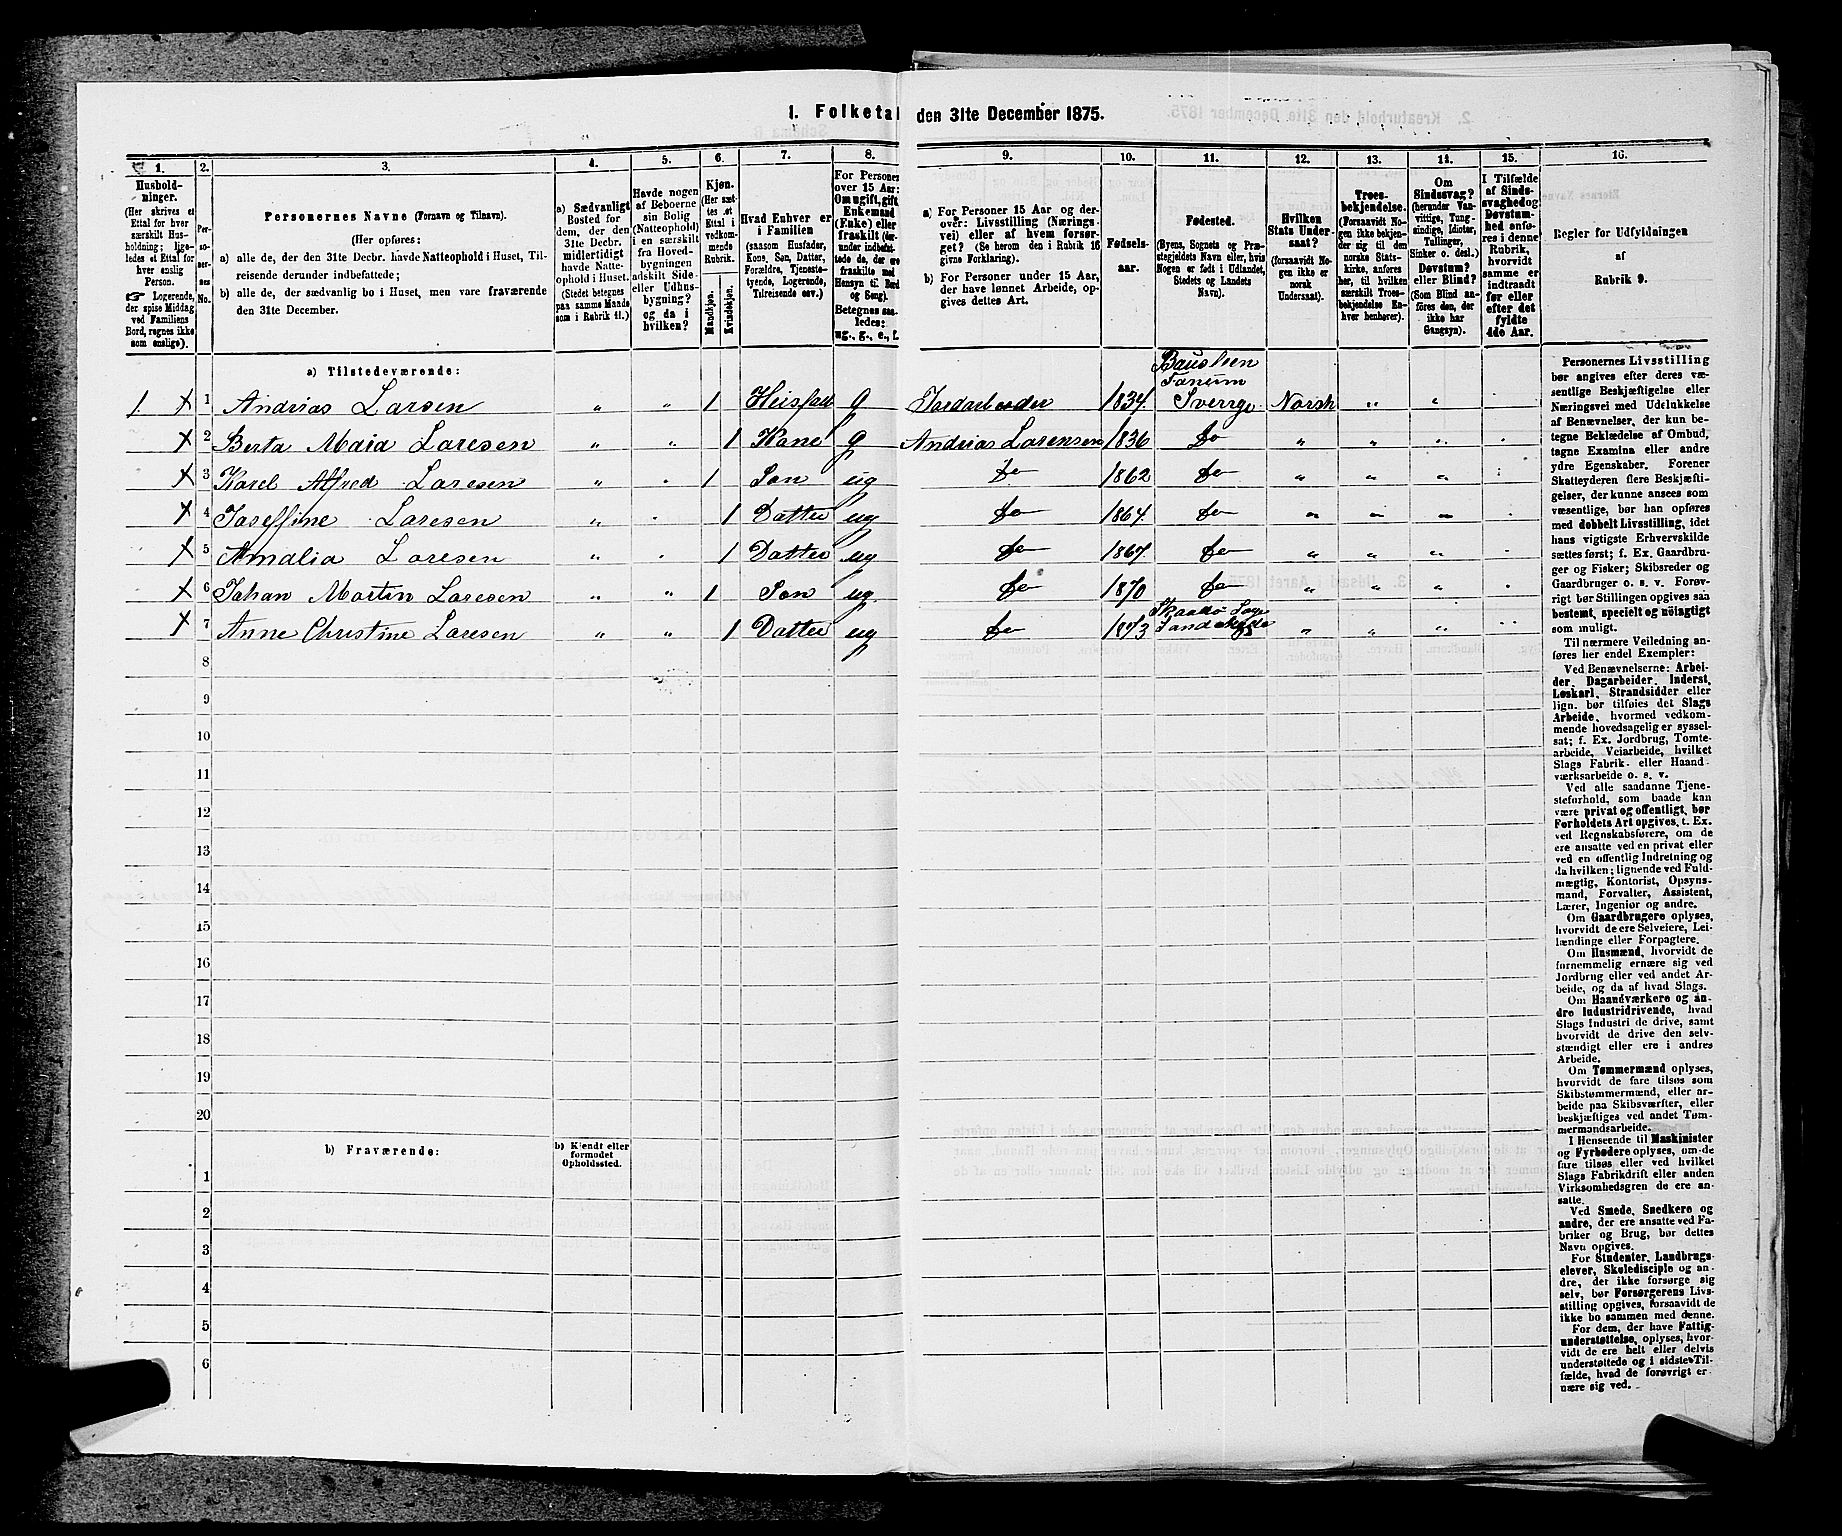 1. Folketal den 31te December 1875.
1. 2. 3. 4. 5. 6. 7. 8. 9. 10. 11. 12. 13. 14. 15. 16.
Husholdninger.
(Her skrives et Ettal for hver særskilt Husholdning; ligeledes et Ettal for hver enslig Person.
☞ Logerende, der spise Middag ved Familiens Bord, regnes ikke som enslige).
Personernes No.
Personernes Navne (Fornavn og Tilnavn).
(Her opføres:
a) alle de, der den 31te Decbr. havde Natteophold i Huset, Tilreisende derunder indbefattede;
b) alle de, der sædvanlig bo i Huset, men vare fraværende den 31te December.
a) Sædvanligt Bosted for dem, der den 31te Decbr. midlertidigt havde Natteophold i Huset. (Stedet betegnes paa samme Maade som i Rubrik 11.)
Havde nogen af Beboerne sin Bolig (Natteophold) i en særskilt fra Hovedbygningen adskilt Side- eller Udhusbygning? og da i hvilken?
Kjøn. (Her sættes et Ettal i vedkommende Rubrik.
Mandkjøn. Kvindekjøn.
Hvad Enhver er i Familien
(saasom Husfader, Kone, Søn, Datter, Forældre, Tjenestetyende, Logerende, Tilreisende osv.)
For Personer over 15 Aar: Om ugift, gift, Enkemand (Enke) eller fraskilt
Betegnes saaledes: ug., g., e., f.
a) For Personer 15 Aar og derover: Livsstilling (Næringsvei) eller af hvem forsørget? (Se herom den i Rubrik 16 givne Forklaring).
b) For Personer under 15 Aar, der have lønnet Arbeide, opgives dettes Art.
Fødselsaar.
Fødested.
(Byens, Sognets og Præstegjeldets Navn eller, hvis Nogen er født i Udlandet, Stedets og Landets Navn).
Hvilken Stats Undersaat?
(forsaavidt Nogen ikke er norsk Undersaat).
Troesbekjendelse.
(Forsaavidt Nogen ikke bekjender sig til den norske Statskirke, anføres her, til hvilken særskilt Troesbekjendelse Enhver henhører).
Om Sindssvag? (herunder Vanvittige, Tungsindige, Idioter, Tullinger, Sinker o. desl.) Døvstum? eller Blind? (Som Blind anføres den, der ikke har Gangsyn).
I Tilfælde af Sindssvaghed og Døvstumhed anføres i denne Rubrik, hvorvidt samme er indtraadt før eller efter det fyldte 4de Aar.
Regler for Udfyldningen af Rubrik 9.
a) Tilstedeværende:
1. 1 Andrias Larsen „ „ 1 Husfad g Jordarbeder 1834. Baushen Tanum Sverrge Norsk „ „ .
2 Berta Maia Laresen „ „ 1 Kone g Andrias Lorensen 1836 do „ „ „ .
3 Karel Alfred Laresen „ . 1 Søn ug do 1862 do „ „ „ :
4 Joseffine Laresen „ . 1 Datter ug do 1864. do „ „ „ .
5 Amalia Laresen „ . 1 Datter ug do 1867. do „ „ „ .
6 Johan Martin Laresen „ „ 1 Søn ug. do 1870 do „ „ „ .
7 Anne Christine Laresen „ „ 1 Datter ug do 1873 „ „ „
8
9
10
11
12
13
14
15
16
17
18
19
20
b) Fraværende:
b) Kjendt eller formodet Opholdssted.
1
2
3
4
5
6
Personernes Livsstilling
bør angives efter deres væ-
sentlige Beskjæftigelse eller
Næringsvei med Udelukkelse
af Benævnelser, der kun be-
tegne Beklædelse af Ombud,
tagne Examina eller andre
ydre Egenskaber. Forener
Skatteyderen flere Beskjæfti-
gelser, der kunne ansees som
væsentlige, bør han opføres
med dobbelt Livsstilling, idet
hans vigtigste Erhvervskilde
sættes først; f. Ex. Gaardbru-
ger og Fisker; Skibsreder og
Gaardbruger o. s. v. Forøv-
rigt bør Stillingen opgives saa
bestemt, specielt og nöiagtigt
som muligt.
Til nærmere Veiledning an-
føres her endel Exempler:
Ved Benævnelserne: Arbei-
der, Dagarbeider, Inderst,
Løskarl, Strandsidder eller
lign. bør tilføies det Slags
Arbeide, hvormed vedkom-
mende hovedsagelig er syssel-
sat; f. Ex. Jordbrug, Tomte-
arbeide, Veiarbeide, hvilket
Slags Fabrik- eller Haand-
værksarbeide o. s. v.
Ved alle saadanne Tjene-
steforhold, som baade kan
være privat og offentligt, bør
Forholdets Art opgives, t. Ex.
ved Regnskabsførere, om de
ere ansatte ved en privat eller
ved en offentlig Indretning og
da hvilken; lignende ved Fuld-
mægtig, Kontorist, Opsyns-
mand, Forvalter, Assistent,
Lærer, Ingeniør og andre.
Om Gaardbrugere oplyses,
hvorvidt de ere Selveiere, Lei-
lændinge eller Forpagtere.
Om Husmænd, hvorvidt de
fornemmelig ernære sig ved
Jordbrug eller ved andet Ar-
beide, og da af hvad Slags.
Om Haandværkere og an-
dre Industridrivende, hvad
Slags Industri de drive, samt
hvorvidt de drive den selv-
stændigt eller ere i andres
Arbeide.
Om Tømmermænd oplyses,
hvorvidt de fare tilsøs som
Skibstømmermænd, eller ar-
beide paa Skibsværfter, eller
beskjæftiges ved andet Tøm-
mermandsarbeide.
I Henseende til Maskinister
og Fyrbødere oplyses, om de
fare tilsøs eller ved hvilket
Slags Fabrikdrift eller anden
Virksomhedsgren de ere an-
satte.
Ved Smede, Snedkere og
andre, der ere ansatte ved Fa-
briker og Brug, bør dettes
Navn opgives.
For Studenter, Landbrugs-
elever, Skoledisciple og an-
dre, der ikke forsørge sig
selv, bør Forsørgerens Livs-
stilling opgives, forsaavidt de
ikke bo sammen med denne.
For dem, der have Fattig-
understøttelse, oplyses, hvor-
vidt de ere helt eller delvis
understøttede og i sidste Til-
fælde, hvad de forøvrigt er-
nære sig ved.